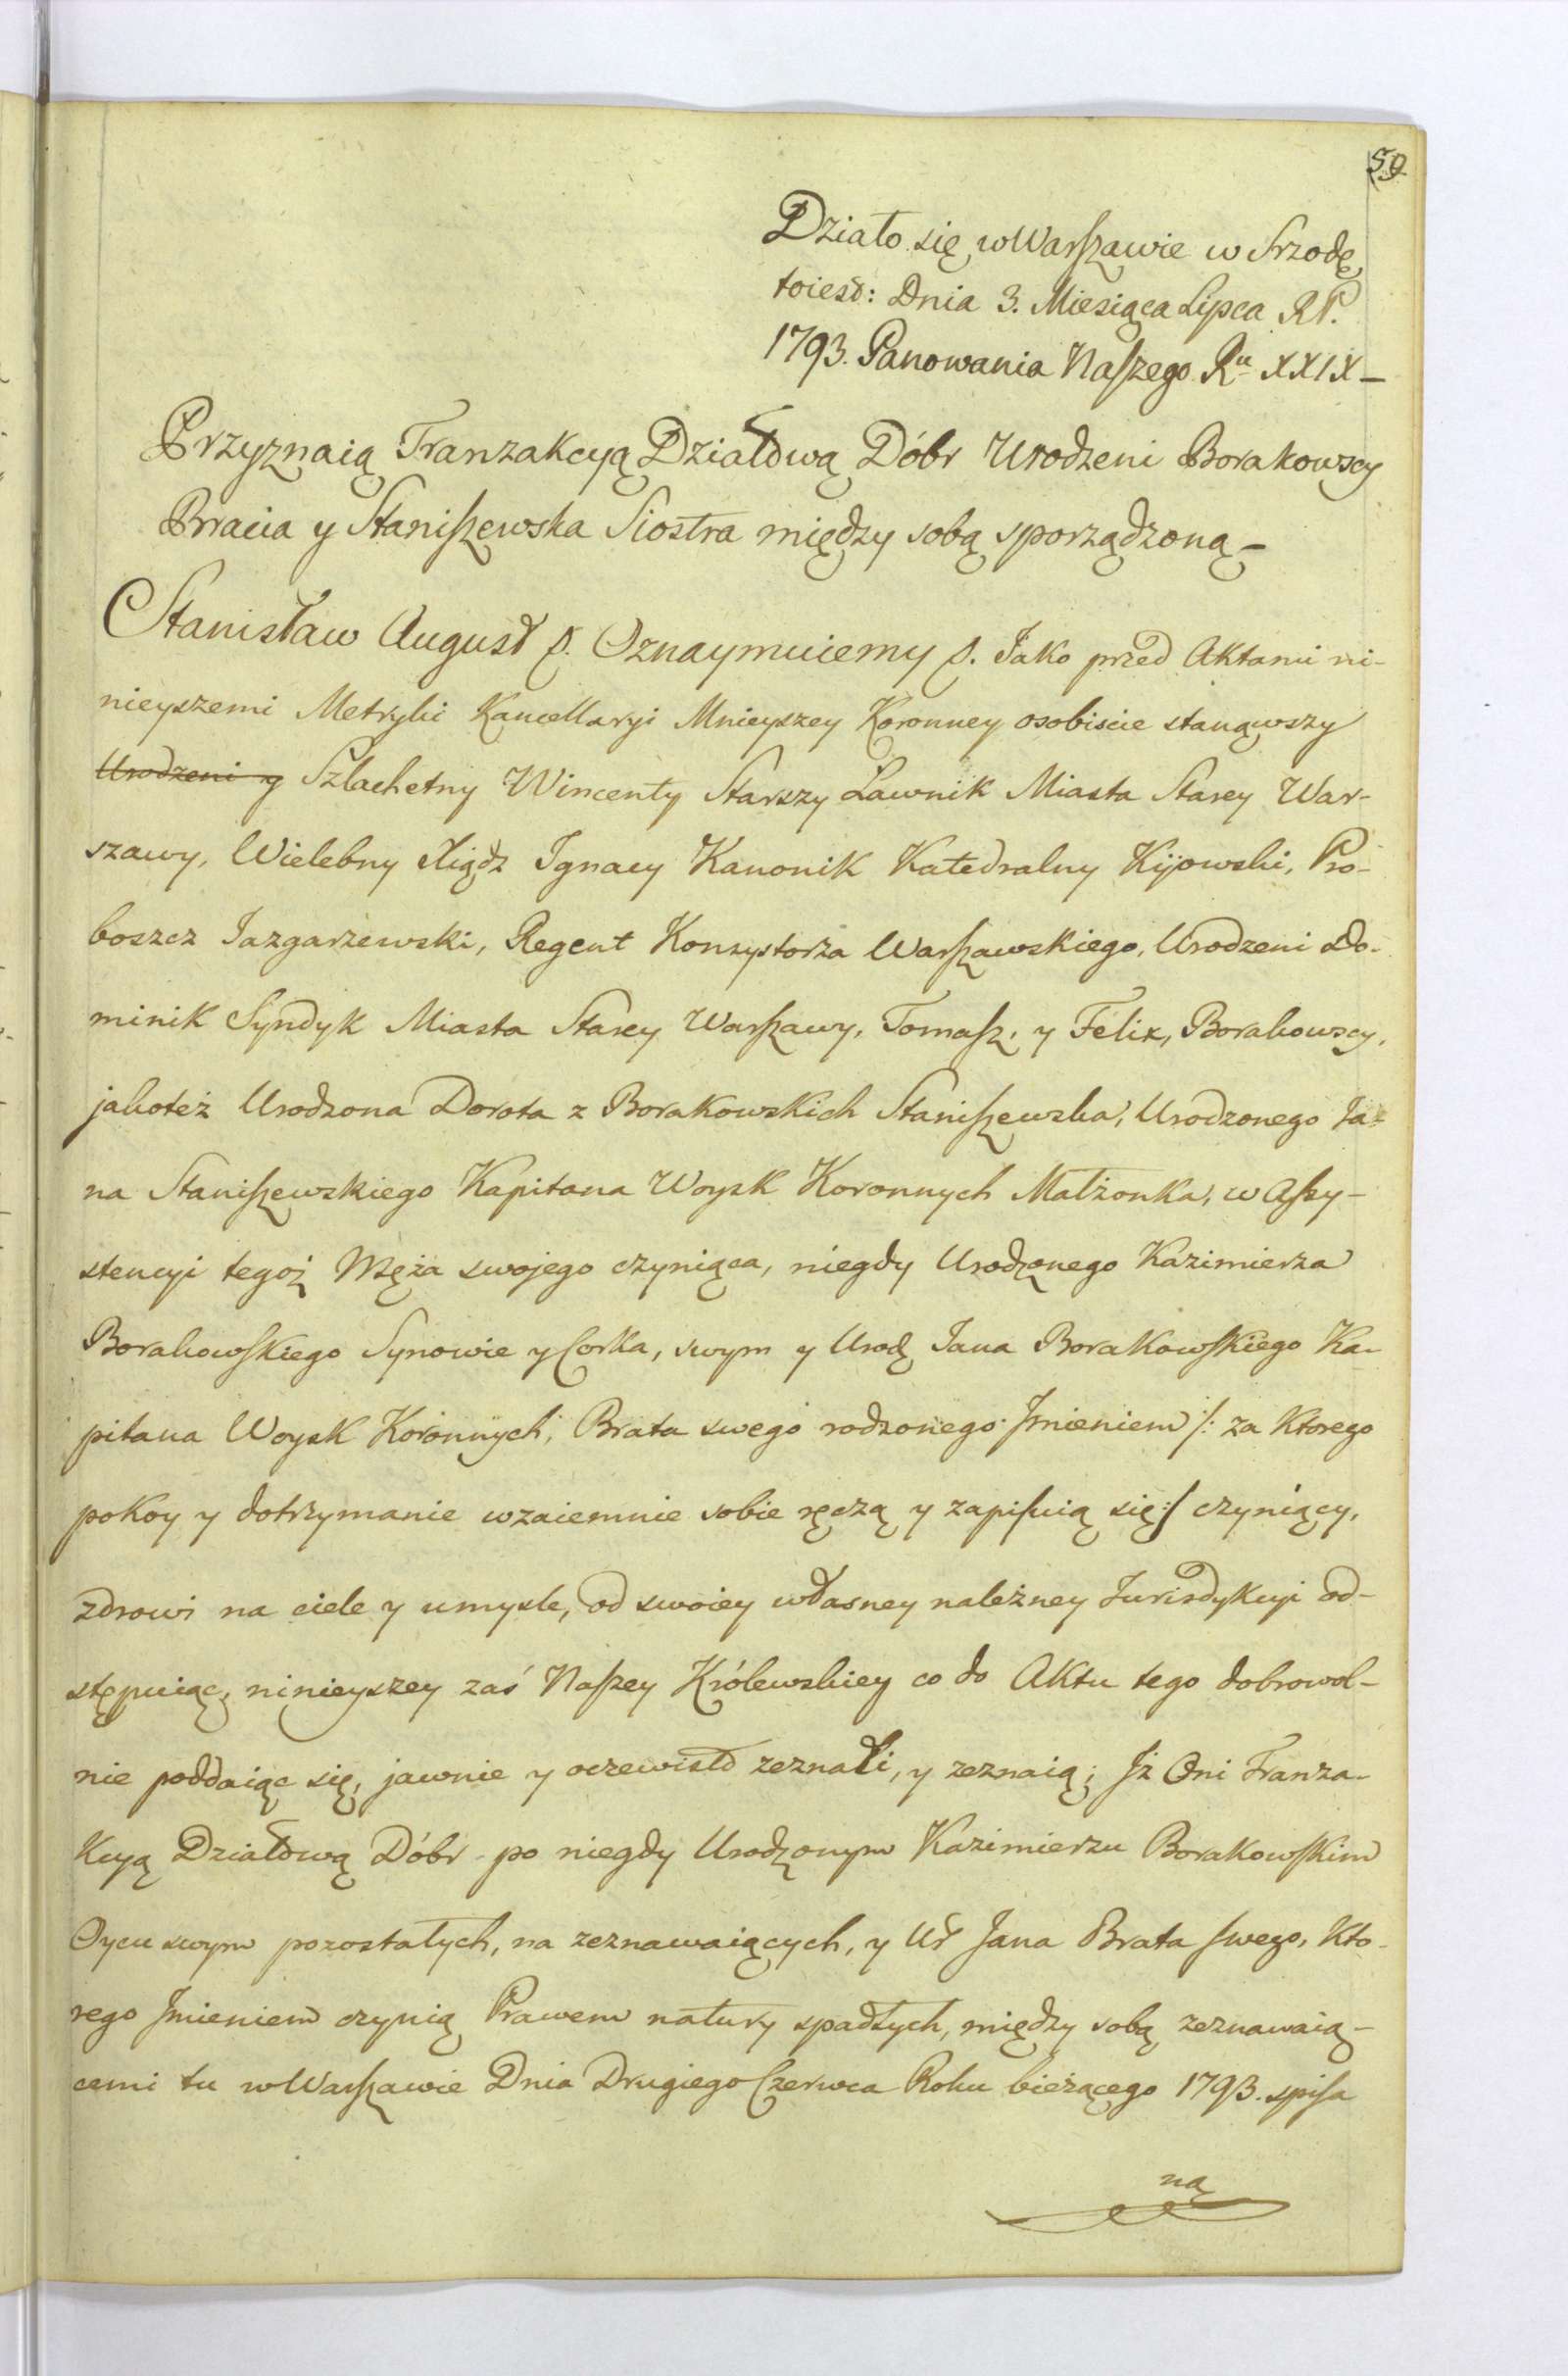 59
Działo się w Warszawie w Srzodę
toiest: Dnia 3. Miesiąca Lipca RP.
1793. Panowania Naszego Ru XXIX –
Przyznaią Tranzakcyą Działową Dóbr Urodzeni Borakowscy
Bracia y Staniszewska Siostra między sobą sporządzoną –
Stanisław August &. Oznaymuiemy &. Jako przed Aktami ni-
nieyszemi Metryki Kancellaryi Mnieyszey Koronney osobiscie stanąwszy
Urodzeni y Szlachetny Wincenty Starszy Ławnik Miasta Starey War-
szawy, Wielebny Xiądz Ignacy Kanonik Katedralny Kijowski, Pro-
boszcz Jazgarzewski, Regent Konsystorza Warszawskiego, Urodzeni Do-
minik Syndyk Miasta Starey Warszawy, Tomasz, y Felix, Borakowscy,
jakoteż Urodzona Dorota z Borakowskich Staniszewska, Urodzonego Ja-
na Staniszewskiego Kapitana Woysk Koronnych Małżonka, w Assy-
stencyi tegoż Męża swojego czyniąca, niegdy Urodzonego Kazimierza
Borakowskiego Synowie y Corka, swym y Urodz Jana Borakowskiego Ka-
pitana Woysk Koronnych, Brata swego rodzonego Jmieniem /: za Ktorego
pokoy y dotrzymanie wzaiemnie sobie ręczą y zapisuią się :/ czyniący,
zdrowi na ciele y umysle, od swoiey własney należney Jurisdykcyi od-
stępuiąc, ninieyszey zaś Naszey Królewskiey co do Aktu tego dobrowol-
nie poddaiąc się, jawnie y oczewisto zeznali, y zeznaią; Jż Oni Tranza-
kcyą Działową Dóbr po niegdy Urodzonym Kazimierzu Borakowskim
Oycu swym pozostałych, na zeznawaiących, y Ur Jana Brata swego, Kto-
rego Jmieniem czynią Prawem natury spadłych, między sobą zeznawaią-
cemi tu w Warszawie Dnia Drugiego Czerwca Roku bieżącego 1793. spisa
ną